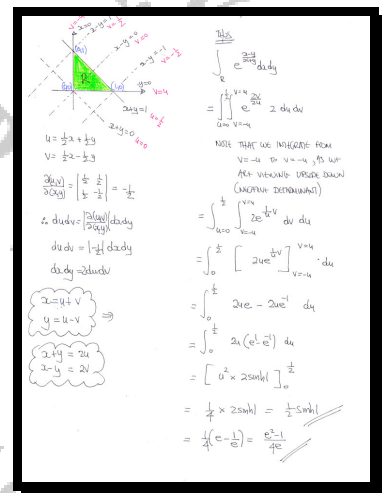 x=0
x-y=1
v=½
(0,1)
x-y=0
v=0
x-y=-1
v=-½
R
(0,0)
(1,0)
y=0
v=u
x+y=1
u=½
x+y=0
u=0
u = ½x + ½y
v = ½x - ½y
∂(u,v)/∂(x,y) = | ½ ½ ; ½ -½ | = -½
∴ du dv = |∂(u,v)/∂(x,y)| dx dy
du dv = |-½| dx dy
dx dy = 2 du dv
x = u + v
y = u - v
⇒
x+y = 2u
x-y = 2v
THUS
∫_R e^((x-y)/(x+y)) dx dy
= ∫_{u=0}^{½} ∫_{v=-u}^{v=u} e^(2v/2u) 2 du dv
NOTE THAT WE INTEGRATE FROM
v=-u TO v=u, AS WE
ARE VIEWING UPSIDE DOWN
(NEGATIVE DETERMINANT)
= ∫_{u=0}^{½} ∫_{v=-u}^{v=u} 2e^(1/u v) dv du
= ∫_0^½ [ 2u e^(1/u v) ]_{v=-u}^{v=u} du
= ∫_0^½ 2ue - 2ue^-1 du
= ∫_0^½ 2u (e^1 - e^-1) du
= [ u² × 2sinh1 ]_0^½
= ¼ × 2sinh1 = ½ sinh1
= ¼(e - 1/e) = (e²-1)/4e